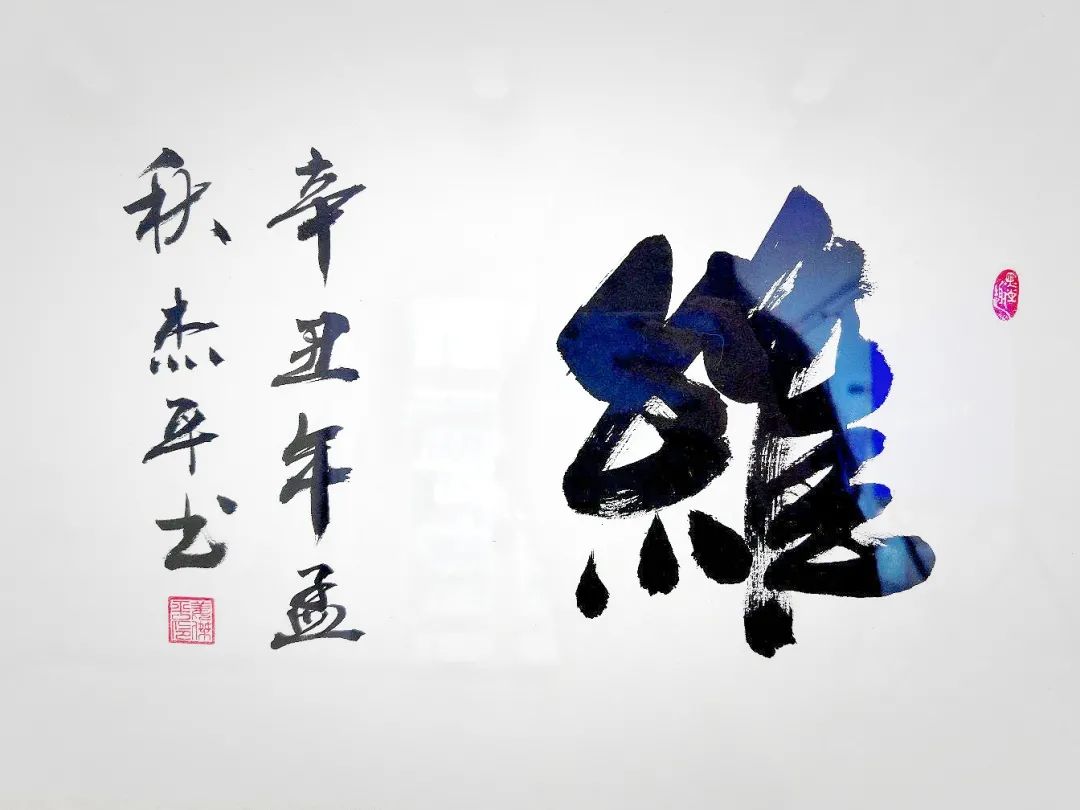 維
辛丑年孟
秋杰平书